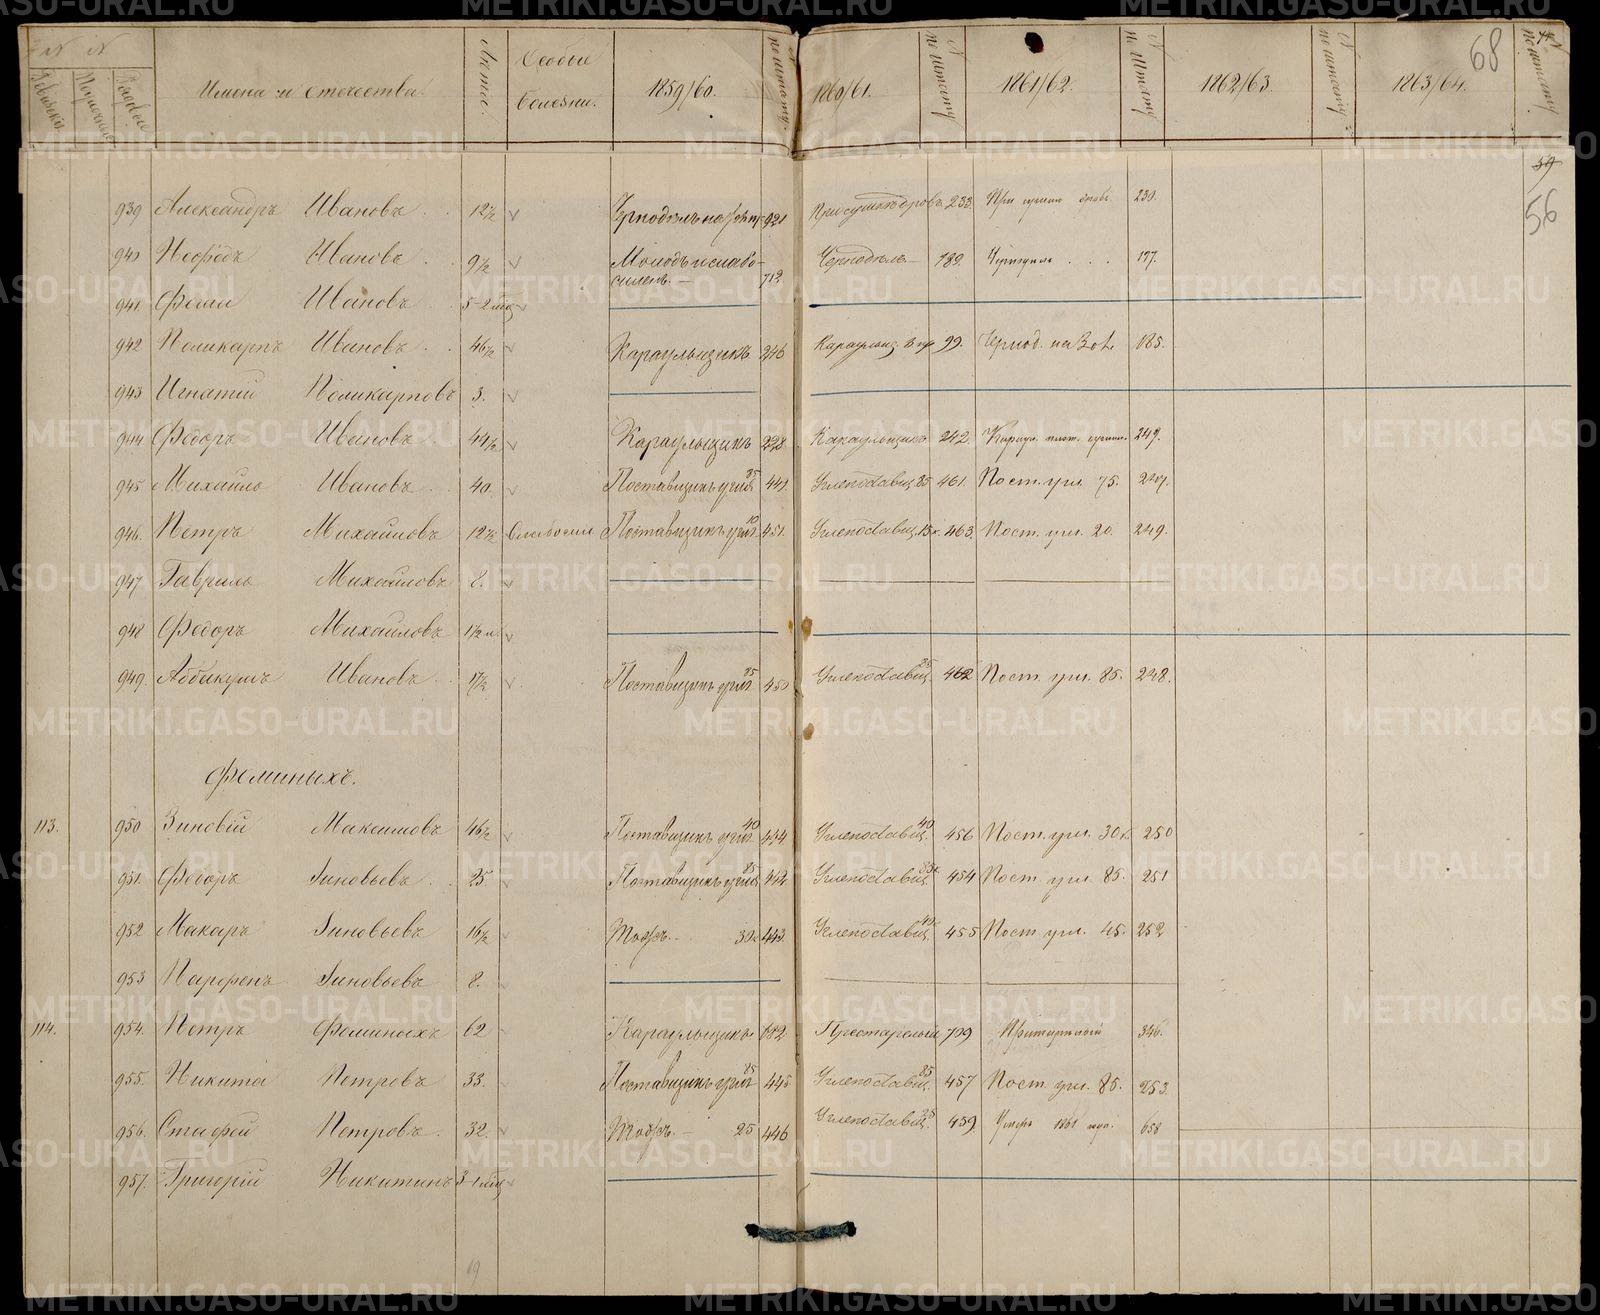 № № Имена и отечества. Лѣта. Особые болезни. 1859/60. № по штату. 1860/61. № по штату 1861/62. № по штату 1862/63. № по штату 1863/64. № по штату
68
59
56
939 Александръ Ивановъ 12½ 921 При сушкѣ дровъ 233. При сушкѣ дровъ. 230.
940 Нефедъ Ивановъ 9½ Молодъ и слабосиленъ. 712 Чернодѣлъ 189. 197.
941. Фома Ивановъ 5-2 мѣс
942 Поликарпъ Ивановъ 46½ Караульщикъ 246 99. Чернод. на 185.
943 Игнатій Поликарповъ 3.
944 Федоръ Ивановъ 44½ Караульщикъ 228. Караульщикъ 242. 249.
945 Михайло Ивановъ 40. Поставщикъ угля 85 449 Углепоставщ. 85 461. Пост. угл. 75.
946. Петръ Михайловъ 12½ Слабосил Поставщикъ угля 10 451. Углепоставщ. 15 к. 463. Пост. угл. 20. 249.
947 Гаврило Михайловъ 8.
948 Федоръ Михайловъ 1½
949. Аввакумъ Ивановъ 17½ Поставщикъ угля 85 450 Углепоставщ. 85 462 Пост. угл. 85. 248.
Фоминыхъ.
113. 950 Зиновій Максимовъ 46½ Поставщикъ угля 40 444 Углепоставщ. 40 456 Пост. угл. 30 к. 250
951. Федоръ Зиновьевъ 25. Поставщикъ угля 85 442 Углепоставщ. 85 454 Пост. угл. 85. 251
952 Макаръ Зиновьевъ 16½ Тожъ. 30 к 443. Углепоставщ. 40 455 Пост. угл. 45. 252
953 Парфенъ Зиновьевъ 8.
114. 954. Петръ Фоминыхъ 62 Караульщикъ 682 Престарелый 709 346.
955. Никита Петровъ 33. Поставщикъ угля 85 445 Углепоставщ. 85 457 Пост. угл. 85. 253.
956. Стафей Петровъ. 32. Тожъ. 25 446 Углепоставщ. 25 459. Умеръ 1861 658
957. Григорій Никитинъ 3-1 мѣс
METRIKI.GASO-URAL.RU